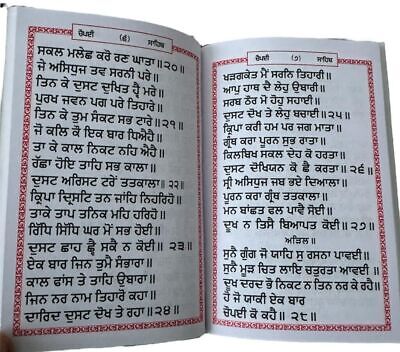 ਚੌਪਈ (੬) ਸਾਹਿਬ
ਸਕਲ ਮਲੇਛ ਕਰੋ ਰਣ ਘਾਤਾ॥੨੦॥
ਜੋ ਅਸਿਧੁਜ ਤਵ ਸਰਨੀ ਪਰੇ॥
ਤਿਨ ਕੇ ਦੁਸਟ ਦੁਖਿਤ ਹ੍ਵੈ ਮਰੇ॥
ਪੁਰਖ ਜਵਨ ਪਗ ਪਰੇ ਤਿਹਾਰੇ॥
ਤਿਨ ਕੇ ਤੁਮ ਸੰਕਟ ਸਭ ਟਾਰੇ॥੨੧॥
ਜੋ ਕਲਿ ਕੋ ਇਕ ਬਾਰ ਧਿਐਹੈ॥
ਤਾ ਕੇ ਕਾਲ ਨਿਕਟ ਨਹਿ ਐਹੈ॥
ਰੱਛਾ ਹੋਇ ਤਾਹਿ ਸਭ ਕਾਲਾ॥
ਦੁਸਟ ਅਰਿਸਟ ਟਰੇਂ ਤਤਕਾਲਾ॥੨੨॥
ਕ੍ਰਿਪਾ ਦ੍ਰਿਸ਼ਟਿ ਤਨ ਜਾਂਹਿ ਨਿਹਰਿਹੋ॥
ਤਾਕੇ ਤਾਪ ਤਨਿਕ ਮਹਿ ਹਰਿਹੋ॥
ਰਿੱਧਿ ਸਿੱਧਿ ਘਰ ਮੋਂ ਸਭ ਹੋਈ॥
ਦੁਸਟ ਛਾਹ ਛ੍ਵੈ ਸਕੈ ਨ ਕੋਈ॥੨੩॥
ਏਕ ਬਾਰ ਜਿਨ ਤੁਮੈ ਸੰਭਾਰਾ॥
ਕਾਲ ਫਾਂਸ ਤੇ ਤਾਹਿ ਉਬਾਰਾ॥
ਜਿਨ ਨਰ ਨਾਮ ਤਿਹਾਰੋ ਕਹਾ॥
ਦਾਰਿਦ ਦੁਸਟ ਦੋਖ ਤੇ ਰਹਾ॥੨੪॥
ਚੌਪਈ (੭) ਸਾਹਿਬ
ਖੜਗਕੇਤ ਮੈਂ ਸਰਨਿ ਤਿਹਾਰੀ॥
ਆਪੁ ਹਾਥ ਦੈ ਲੇਹੁ ਉਬਾਰੀ॥
ਸਰਬ ਠੌਰ ਮੋ ਹੋਹੁ ਸਹਾਈ॥
ਦੁਸਟ ਦੋਖ ਤੇ ਲੇਹੁ ਬਚਾਈ॥੨੫॥
ਕ੍ਰਿਪਾ ਕਰੀ ਹਮ ਪਰ ਜਗ ਮਾਤਾ॥
ਗ੍ਰੰਥ ਕਰਾ ਪੂਰਨ ਸੁਭ ਰਾਤਾ॥
ਕਿਲਬਿਖ ਸਕਲ ਦੇਹ ਕੋ ਹਰਤਾ॥
ਦੁਸਟ ਦੋਖਿਯਨ ਕੋ ਛੈ ਕਰਤਾ॥੨੬॥
ਸ੍ਰੀ ਅਸਿਧੁਜ ਜਬ ਭਏ ਦਿਆਲਾ॥
ਪੂਰਨ ਕਰਾ ਗ੍ਰੰਥ ਤਤਕਾਲਾ॥
ਮਨ ਬਾਂਛਤ ਫਲ ਪਾਵੈ ਸੋਈ॥
ਦੂਖ ਨ ਤਿਸੈ ਬਿਆਪਤ ਕੋਈ॥੨੭॥
ਅੜਿਲ॥
ਸੁਨੈ ਗੁੰਗ ਜੋ ਯਾਹਿ ਸੁ ਰਸਨਾ ਪਾਵਈ॥
ਸੁਨੈ ਮੂੜ ਚਿਤ ਲਾਇ ਚਤੁਰਤਾ ਆਵਈ॥
ਦੂਖ ਦਰਦ ਭੌ ਨਿਕਟ ਨ ਤਿਨ ਨਰ ਕੇ ਰਹੈ॥
ਹੋ ਜੋ ਯਾਕੀ ਏਕ ਬਾਰ
ਚੌਪਈ ਕੋ ਕਹੈ॥੨੮॥